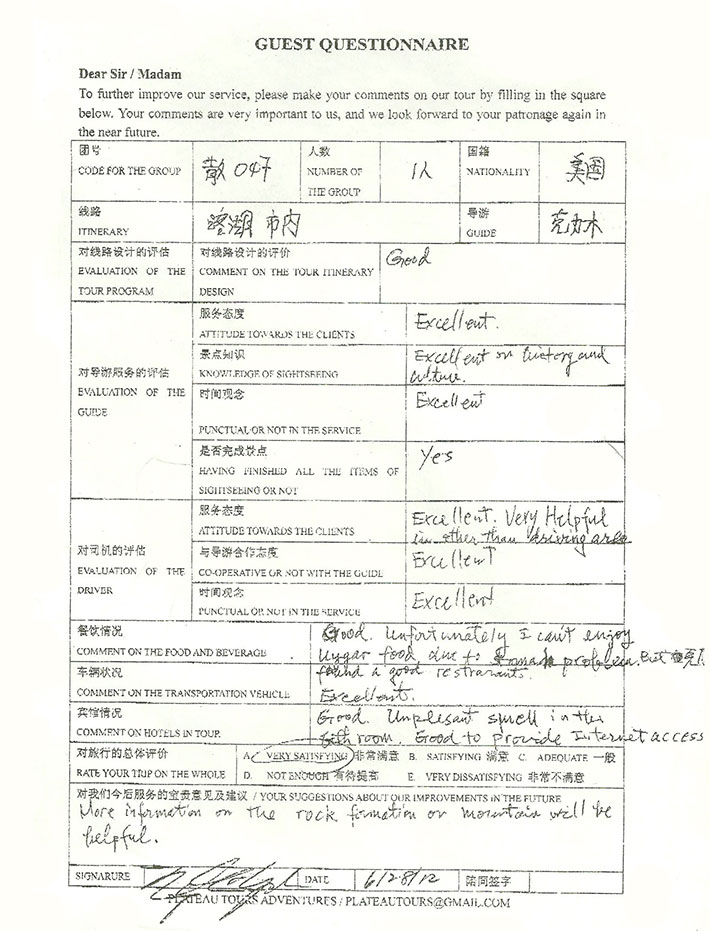 GUEST QUESTIONNAIRE
Dear Sir / Madam
To further improve our service, please make your comments on our tour by filling in the square
below. Your comments are very important to us, and we look forward to your patronage again in
the near future.
团号
CODE FOR THE GROUP
散 047
人数
NUMBER OF
THE GROUP
1人
国籍
NATIONALITY
美国
线路
ITINERARY
湖 市内
导游
GUIDE
克力木
对线路设计的评估
EVALUATION OF THE
TOUR PROGRAM
对线路设计的评价
COMMENT ON THE TOUR ITINERARY
DESIGN
Good
对导游服务的评估
EVALUATION OF THE
GUIDE
服务态度
ATTITUDE TOWARDS THE CLIENTS
Excellent.
景点知识
KNOWLEDGE OF SIGHTSEEING
Excellent on history and
culture.
时间观念
PUNCTUAL OR NOT IN THE SERVICE
Excellent
是否完成景点
HAVING FINISHED ALL THE ITEMS OF
SIGHTSEEING OR NOT
Yes
对司机的评估
EVALUATION OF THE
DRIVER
服务态度
ATTITUDE TOWARDS THE CLIENTS
Excellent. Very Helpful
in other than driving area
与导游合作态度
CO-OPERATIVE OR NOT WITH THE GUIDE
Excellent
时间观念
PUNCTUAL OR NOT IN THE SERVICE
Excellent
餐饮情况
COMMENT ON THE FOOD AND BEVERAGE
Good. Unfortunately I can't enjoy
Uygar food, due to problem. But
found a good restraunts.
车辆状况
COMMENT ON THE TRANSPORTATION VEHICLE
Excellent.
宾馆情况
COMMENT ON HOTELS IN TOUR
Good. Unplesant smell in the
bath room. Good to provide Internet access
对旅行的总体评价
RATE YOUR TRIP ON THE WHOLE
A. VERY SATISFYING 非常满意 B. SATISFYING 满意 C. ADEQUATE 一般
D. NOT ENOUGH 有待提高 E. VERY DISSATISFYING 非常不满意
对我们今后服务的宝贵意见及建议 / YOUR SUGGESTIONS ABOUT OUR IMPROVEMENTS IN THE FUTURE
More information on the rock formation on mountain will be
helpful.
SIGNARURE
DATE
6/28/12
陪同签字
PLATEAU TOURS ADVENTURES / PLATEAUTOURS@GMAIL.COM